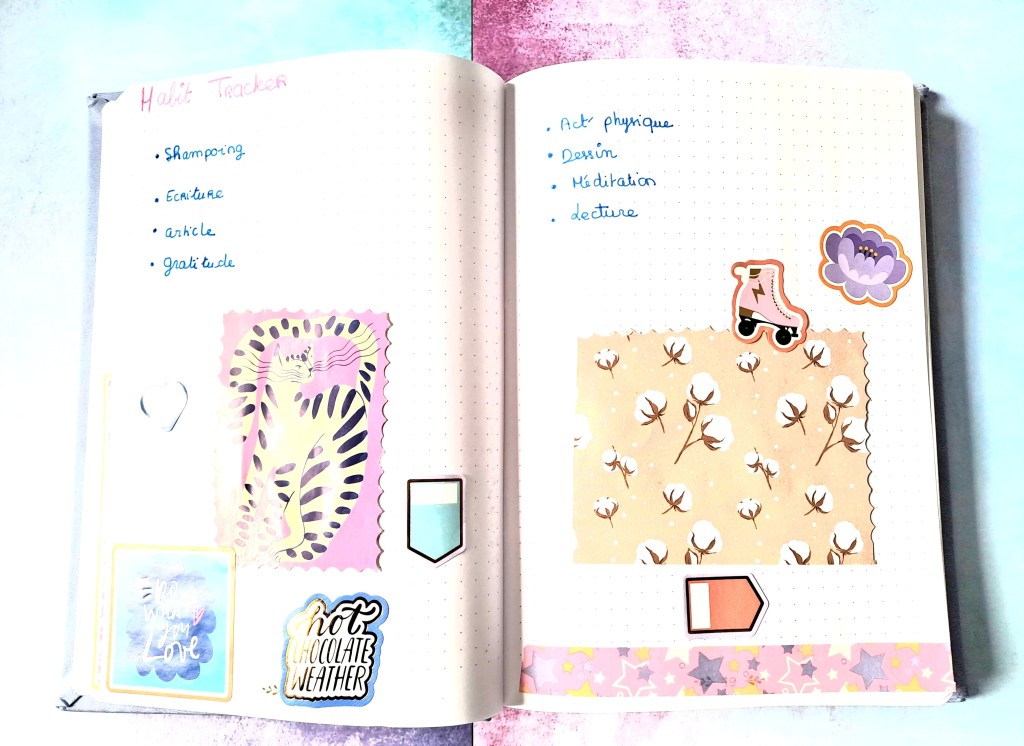 Habit Tracker
• Shampoing
• Ecriture
• article
• gratitude
you
Love
hot
CHOCOLATE
WEATHER
• Act° physique
• Dessin
• Méditation
• Lecture